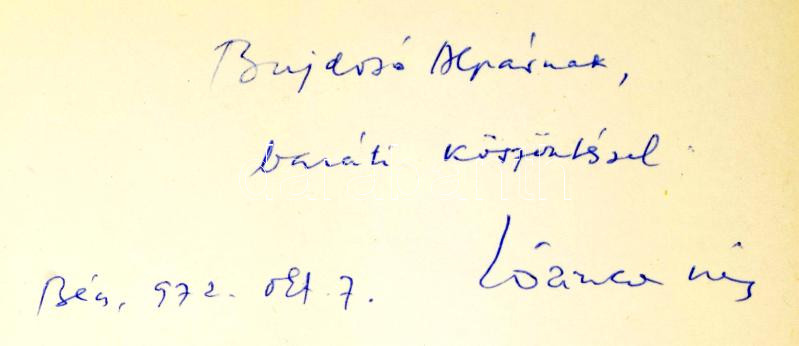 Bujdosó Alpárnak,
baráti köszöntéssel
Bécs, 972. okt. 7.